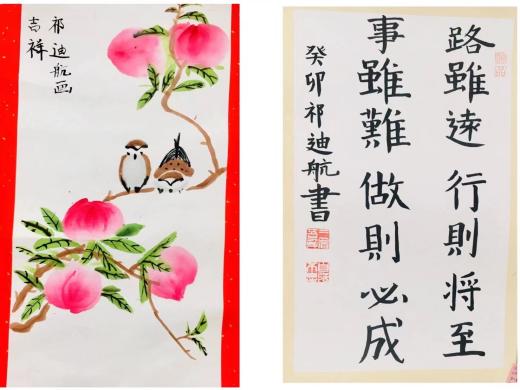 吉祥
祁迪航画
路雖遠 行則將至
事雖難 做則必成
癸卯祁迪航書